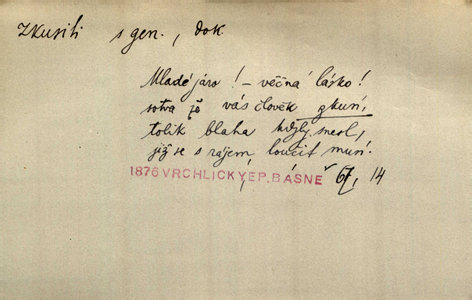 zkusiti s gen., dok.
Mladé jaro! – věčná lásko!
sotva že vás člověk zkusí,
tolik blaha kdyby snesl,
již se s rájem loučit musí.
1876 VRCHLICKÝ, EP. BÁSNĚ 67, 14